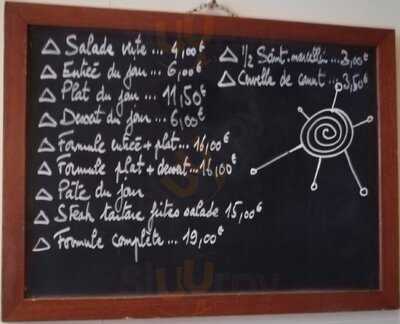 Salade verte ... 4,00€
Entrée du jour ... 6,00€
Plat du jour ... 11,50€
Dessert du jour ... 6,00€
Formule entrée + plat ... 16,00€
Formule plat + dessert ... 16,00€
Pâte du jour
Steak tartare frites salade 15,00€
Formule complète ... 19,00€
1/2 Saint-marcellin ... 3,00€
Cervelle de canut ... 3,50€